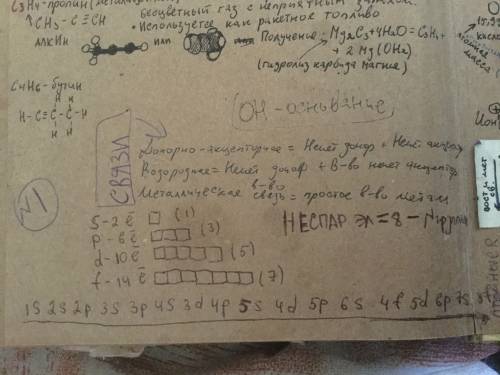 C3H4-пропин (металацети
бесцветный газ с неприятным запахом.
CH3-C≡CH
• Используется как ракетное топливо
алкин
или
Получение
Mg2C3+4H2O=C3H4+
+ 2 Mg(OH2)
(гидролиз карбида магния)
C4H6-бутин
H-C≡C-C-C-H
(OH-основание)
СВЯЗИ
Донорно-акцепторная = Немет донор + Немет акцептор
Водородная= Немет донор + В-во немет акцептор
в-во
Металлическая связь = простое в-во металл
№1
S-2ē (1)
p-6ē (3)
d-10ē (5)
f-14ē (7)
НЕСПАР ЭЛ=8-Nгруппы
1S 2S 2p 3S 3p 4S 3d 4p 5S 4d 5p 6S 4f 5d 6p 7S 5f
Ион